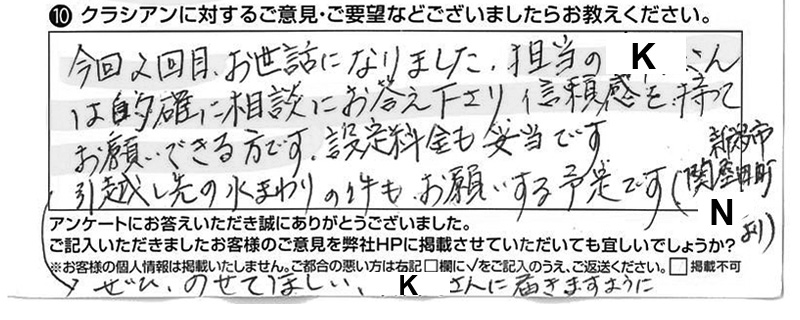 ⑩ クラシアンに対するご意見・ご要望などございましたらお教えください。
今回2回目、お世話になりました。担当の K さん
は的確に相談にお答え下さり信頼感を持て
お願いできる方です。設定料金も妥当です
引越し先の水まわりの件もお願いする予定です(新潟市
関屋田町
N
より)
アンケートにお答えいただき誠にありがとうございました。
ご記入いただきましたお客様のご意見を弊社HPに掲載させていただいても宜しいでしょうか?
※お客様の個人情報は掲載いたしません。ご都合の悪い方は右記□欄に√をご記入のうえ、ご返送ください。□ 掲載不可
→ ぜひ、のせてほしい、 K さんに届きますように